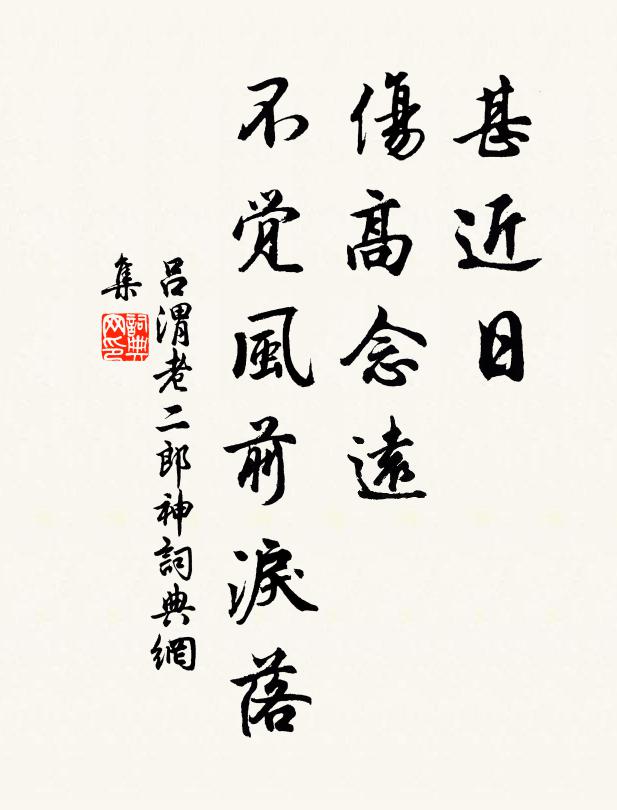 甚近日
傷高念遠
不覺風前淚落
呂渭老二郎神詞典網
集
詞典
网印